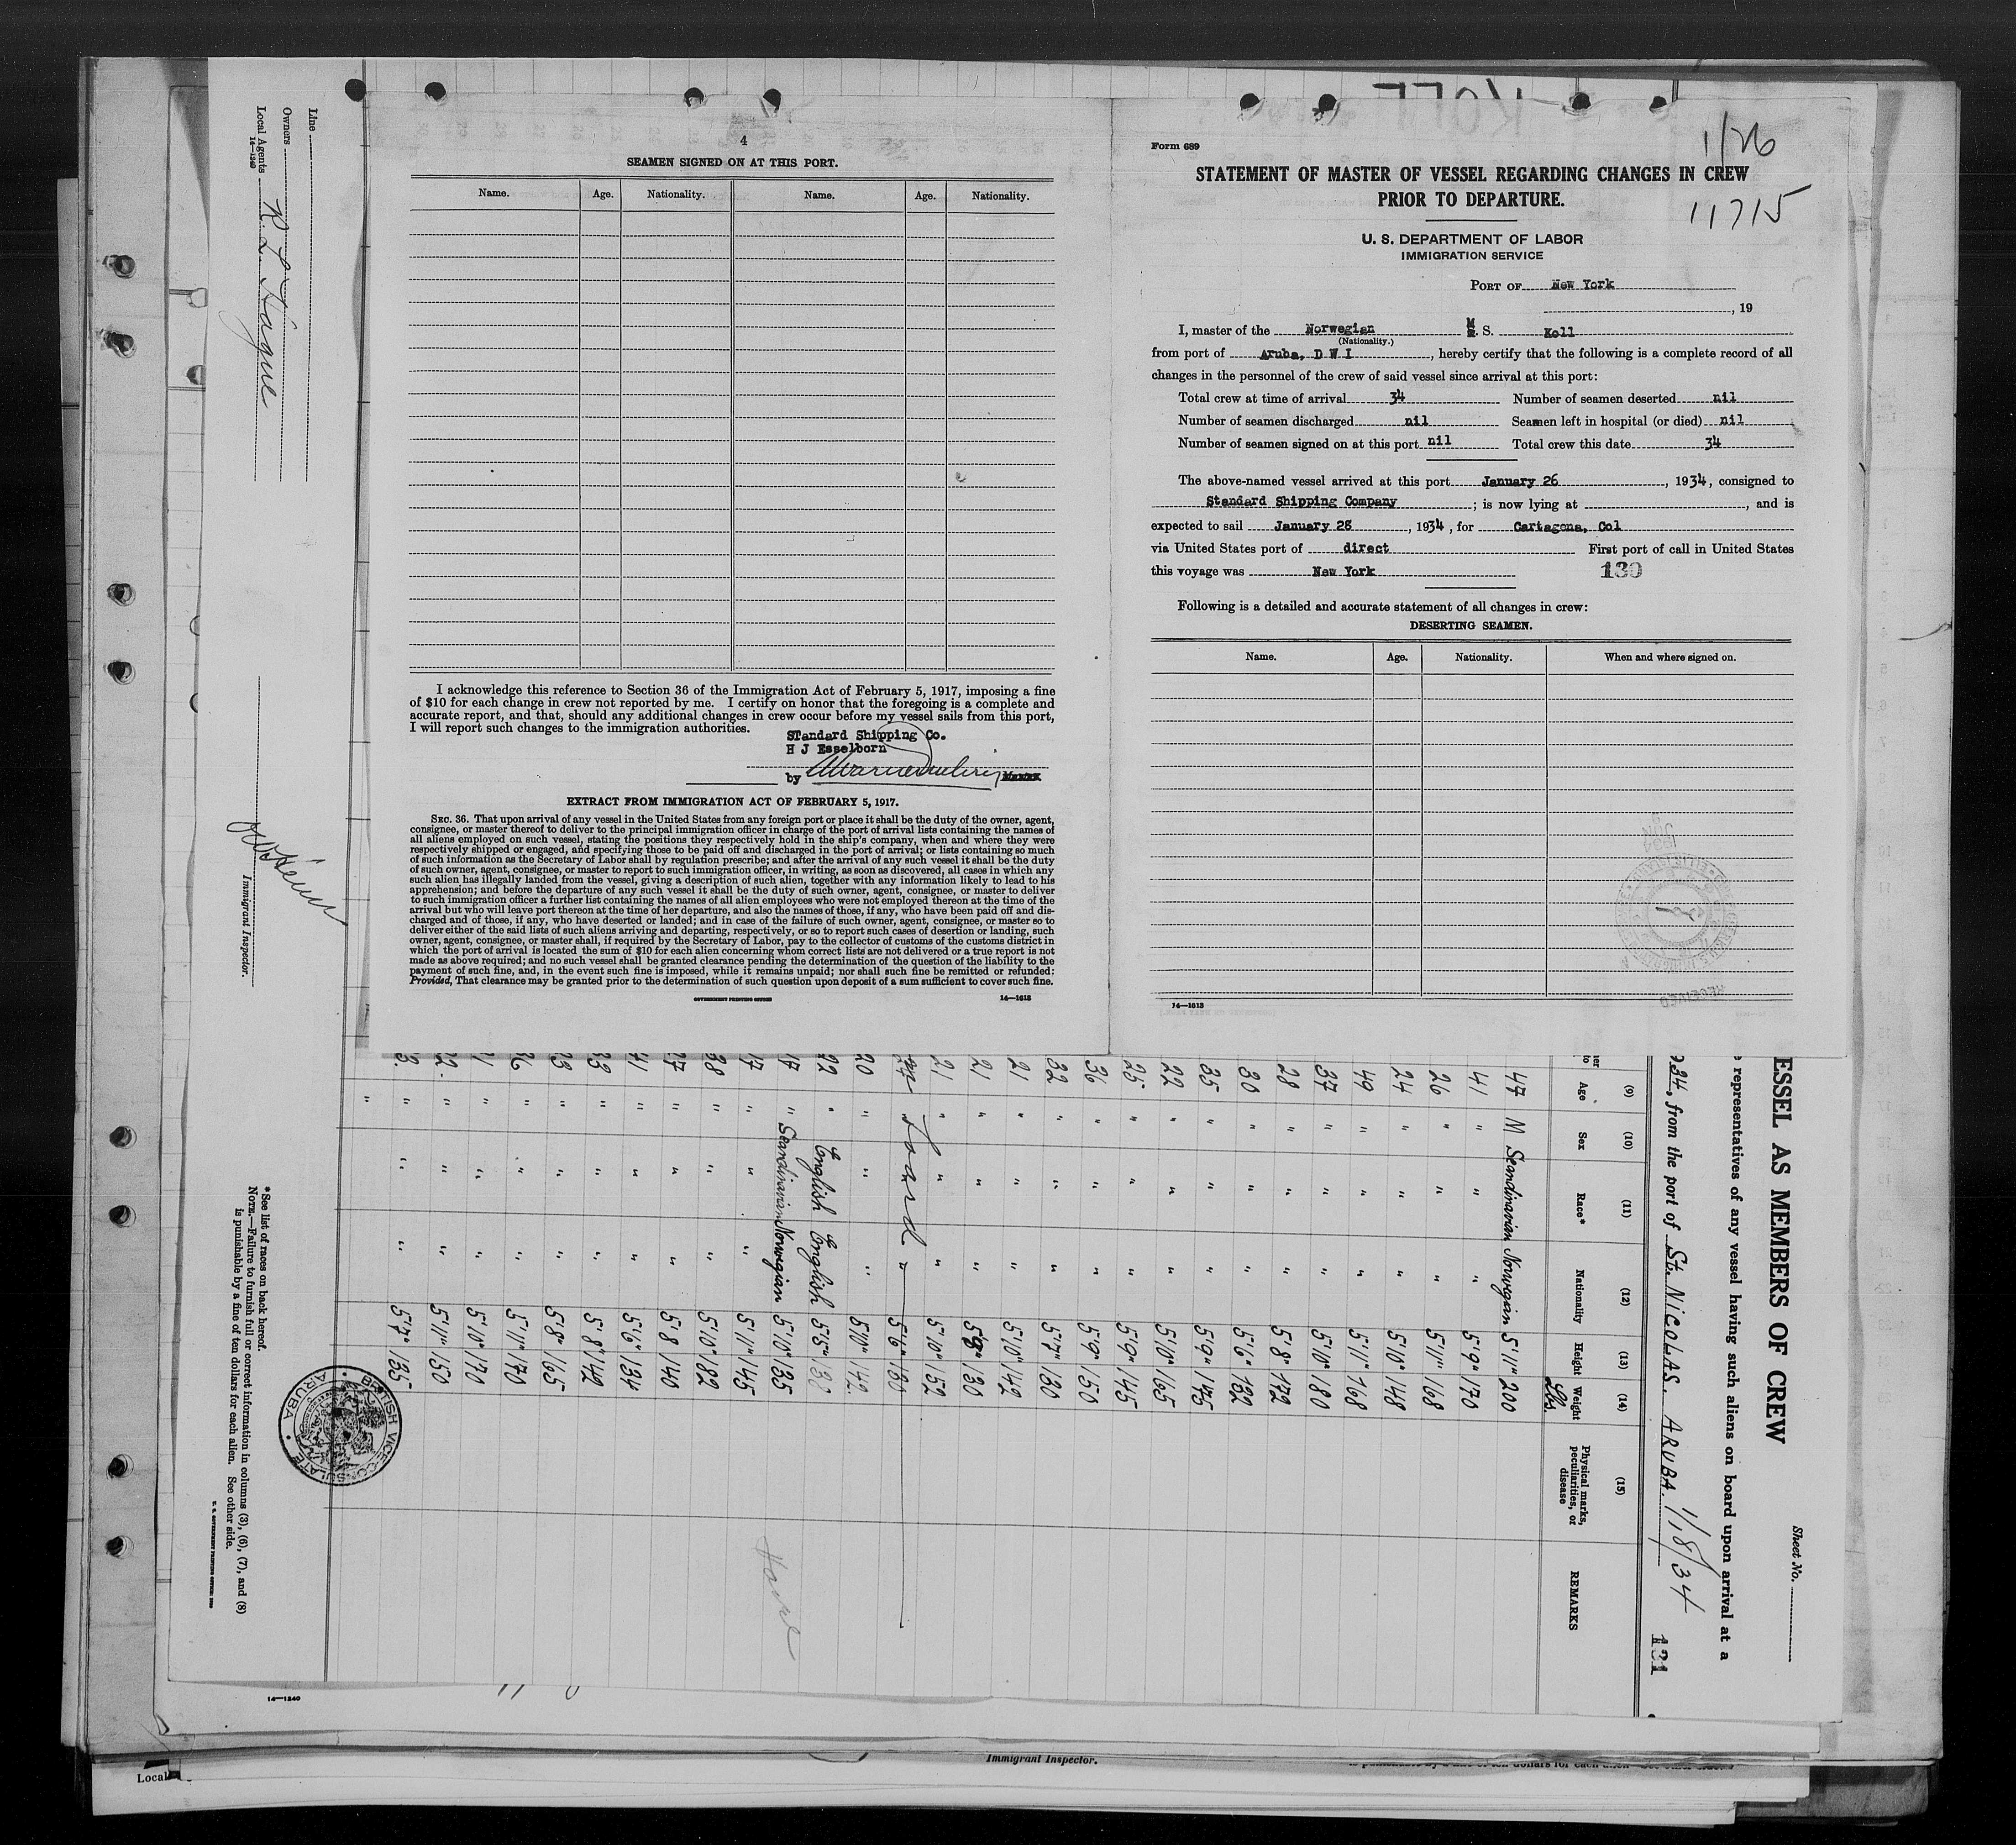 4
SEAMEN SIGNED ON AT THIS PORT.
Name. Age. Nationality. Name. Age. Nationality.
I acknowledge this reference to Section 36 of the Immigration Act of February 5, 1917, imposing a fine
of $10 for each change in crew not reported by me. I certify on honor that the foregoing is a complete and
accurate report, and that, should any additional changes in crew occur before my vessel sails from this port,
I will report such changes to the immigration authorities.
STandard Shipping Co.
H J Esselborn
by
EXTRACT FROM IMMIGRATION ACT OF FEBRUARY 5, 1917.
SEC. 36. That upon arrival of any vessel in the United States from any foreign port or place it shall be the duty of the owner, agent,
consignee, or master thereof to deliver to the principal immigration officer in charge of the port of arrival lists containing the names of
all aliens employed on such vessel, stating the positions they respectively hold in the ship's company, when and where they were
respectively shipped or engaged, and specifying those to be paid off and discharged in the port of arrival; or lists containing so much
of such information as the Secretary of Labor shall by regulation prescribe; and after the arrival of any such vessel it shall be the duty
of such owner, agent, consignee, or master to report to such immigration officer, in writing, as soon as discovered, all cases in which any
such alien has illegally landed from the vessel, giving a description of such alien, together with any information likely to lead to his
apprehension; and before the departure of any such vessel it shall be the duty of such owner, agent, consignee, or master to deliver
to such immigration officer a further list containing the names of all alien employees who were not employed thereon at the time of the
arrival but who will leave port thereon at the time of her departure, and also the names of those, if any, who have been paid off and dis-
charged and of those, if any, who have deserted or landed; and in case of the failure of such owner, agent, consignee, or master so to
deliver either of the said lists of such aliens arriving and departing, respectively, or so to report such cases of desertion or landing, such
owner, agent, consignee, or master shall, if required by the Secretary of Labor, pay to the collector of customs of the customs district in
which the port of arrival is located the sum of $10 for each alien concerning whom correct lists are not delivered or a true report is not
made as above required; and no such vessel shall be granted clearance pending the determination of the question of the liability to the
payment of such fine, and, in the event such fine is imposed, while it remains unpaid; nor shall such fine be remitted or refunded:
Provided, That clearance may be granted prior to the determination of such question upon deposit of a sum sufficient to cover such fine.
GOVERNMENT PRINTING OFFICE
14—1613
Form 689
1/26
STATEMENT OF MASTER OF VESSEL REGARDING CHANGES IN CREW
PRIOR TO DEPARTURE.
11715
U. S. DEPARTMENT OF LABOR
IMMIGRATION SERVICE
PORT OF New York
, 19
I, master of the Norwegian M. S. Koll
(Nationality.)
from port of Aruba, D W I, hereby certify that the following is a complete record of all
changes in the personnel of the crew of said vessel since arrival at this port:
Total crew at time of arrival 34 Number of seamen deserted nil
Number of seamen discharged nil Seamen left in hospital (or died) nil
Number of seamen signed on at this port nil Total crew this date 34
The above-named vessel arrived at this port January 26, 1934, consigned to
Standard Shipping Company; is now lying at , and is
expected to sail January 28, 1934, for Cartagena, Col
via United States port of direct First port of call in United States
this voyage was New York
130
Following is a detailed and accurate statement of all changes in crew:
DESERTING SEAMEN.
Name. Age. Nationality. When and where signed on.
RECEIVED
14—1613
Sheet No.
ESSEL AS MEMBERS OF CREW
representatives of any vessel having such aliens on board upon arrival at a
934, from the port of St. NICOLAS. ARUBA. 1/18/34
131
(9) (10) (11) (12) (13) (14) (15)
Age Sex Race* Nationality Height Weight Physical marks, peculiarities, or disease REMARKS
Lbs.
47 M Scandinavian Norwegian 5'11" 200
41 " " " 5'9" 170
26 " " " 5'11" 168
24 " " " 5'10" 148
49 " " " 5'11" 168
37 " " " 5'10" 180
28 " " " 5'8" 172
30 " " " 5'6" 132
35 " " " 5'9" 175
22 " " " 5'10" 165
25 " " " 5'9" 145
36 " " " 5'9" 150
32 " " " 5'7" 130
21 " " " 5'10" 142
21 " " " 5'8" 130
21 " " " 5'10" 152
5'6" 130
20 " " " 5'10" 142
22 " English English 5'5" 138
" Scandinavian Norwegian 5'10" 135
17 " " " 5'11" 145
38 " " " 5'10" 182
27 " " " 5'8 140
41 " " " 5'6" 134
33 " " " 5'8" 142
23 " " " 5'8" 165
36 " " " 5'11" 170
" " " 5'10" 170
22 " " " 5'11" 150
" " " 5'7" 135
VICE-CONSULATE ARUBA
Line
Owners
Local Agents R. L. Hague
14—1240
Immigrant Inspector.
*See list of races on back hereof.
NOTE.—Failure to furnish full or correct information in columns (3), (6), (7), and (8)
is punishable by a fine of ten dollars for each alien. See other side.
14—1240
Immigrant Inspector.
Local